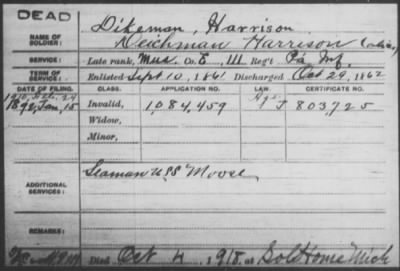 DEAD
Dikeman, Harrison
NAME OF SOLDIER:
Deichman Harrison (alias)
SERVICE:
Late rank, Mus. Co. E, 111 Reg't Pa Inf.
TERM OF SERVICE:
Enlisted Sept 10, 1861 Discharged Oct 29, 1862
DATE OF FILING. CLASS. APPLICATION NO. LAW. CERTIFICATE NO.
1892, Jan, 15 Invalid, 1,084,459 Age J 803,725
Widow,
Minor,
ADDITIONAL SERVICES:
Seaman USS Moose
REMARKS:
Died Oct 4, 1918, at Sol Home Mich